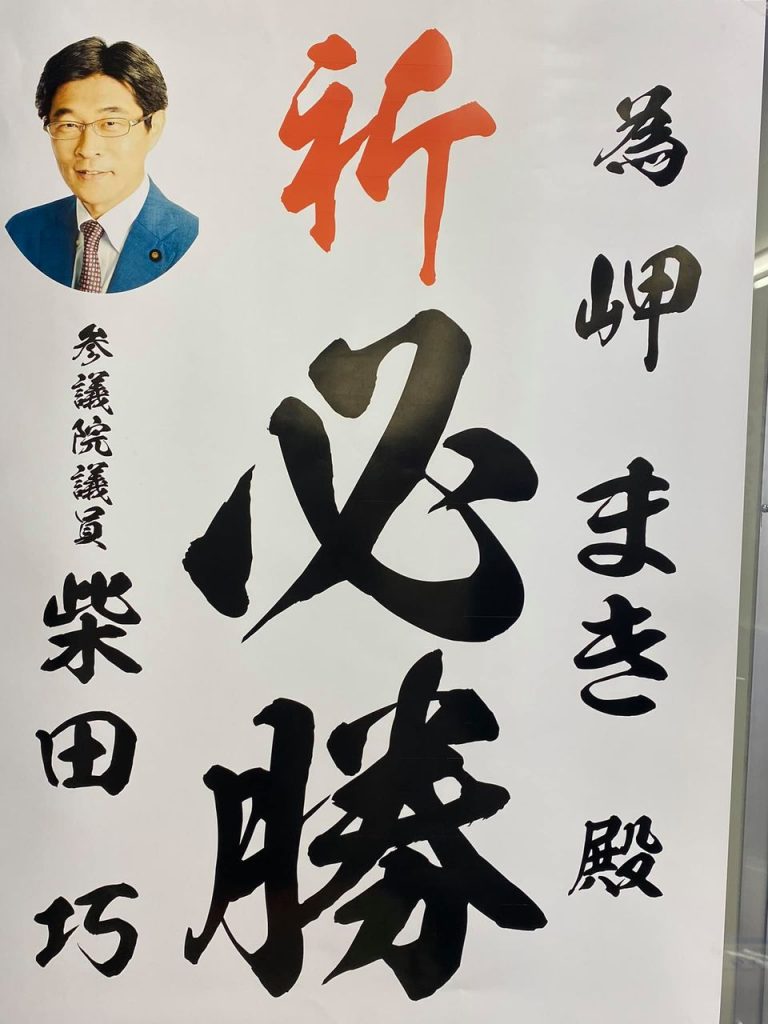 為 岬 まき 殿
祈 必勝
参議院議員 柴田 巧